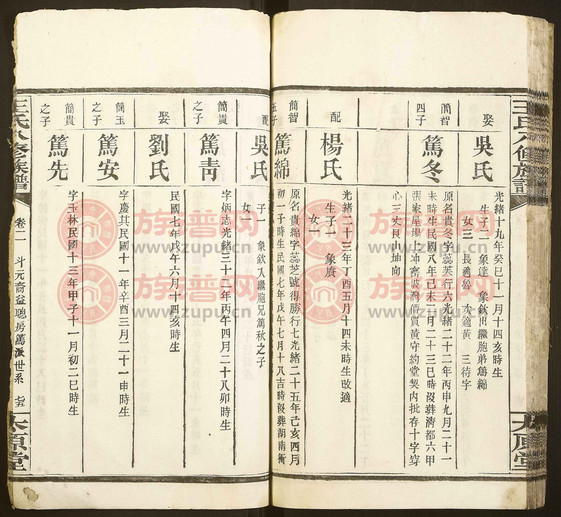 王氏八修族譜
太原堂
娶
吳氏
光緒十九年癸巳十一月十四亥時生
生子二 象達 象欽出繼胞弟篤綿
女三 長適
次適黃
三待字
簡智
四子
篤冬
原名貴冬字蕊芙行六光緒二十二年丙申九月二十一
未時生民國八年己未二月二十三巳時歿葬濟都六甲
心三丈艮山坤向
配
楊氏
光緒二十三年丁酉五月十四未時生改適
生子一 象賡
女一
簡智
五子
篤綿
原名貴綿字蕊芝號得勝行七光緒二十五年己亥四月
初一子時生民國七年戊午七月十八吉時歿葬湖南衡
配
吳氏
子一 象欽入繼胞兄篤秋之子
女一
簡貴
之子
篤靑
字炳志光緒三十二年丙午四月二十八卯時生
娶
劉氏
民國七年戊午六月十四亥時生
簡玉
之子
篤安
字慶其民國十一年辛酉三月二十一申時生
簡貴
之子
篤先
字玉林民國十三年甲子十一月初二巳時生
王氏八修族譜
卷二
斗元裔益聰房篤派世系
太原堂
族普网
www.zupu.cn